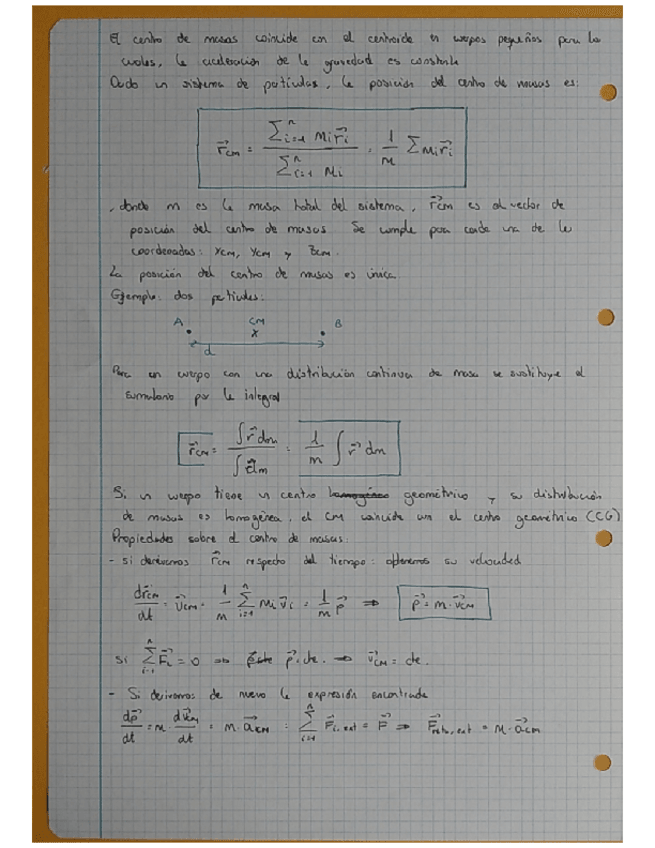 El centro de masas coincide con el centroide en cuerpos pequeños para los
cuales, la aceleración de la gravedad es constante
Dado un sistema de partículas, la posición del centro de masas es:
r⃗cm = Σⁿᵢ₌₁ mi r⃗i / Σⁿᵢ₌₁ mi = 1/m Σ mi r⃗i
, donde m es la masa total del sistema, r⃗cm es el vector de
posición del centro de masas Se cumple para cada una de las
coordenadas: xcm, ycm y zcm.
La posición del centro de masas es única.
Ejemplo: dos partículas:
A CM B
x
d
Para un cuerpo con una distribución continua de masa se sustituye el
sumatorio por la integral
r⃗cm = ∫ r⃗ dm / ∫ dm = 1/m ∫ r⃗ dm
Si un cuerpo tiene un centro geométrico y su distribución
de masas es homogénea, el CM coincide con el centro geométrico (CG)
Propiedades sobre el centro de masas:
- si derivamos r⃗cm respecto del tiempo: obtenemos su velocidad
dr⃗cm/dt = v⃗cm = 1/m Σⁿᵢ₌₁ mi v⃗i = 1/m p⃗ ⇒ p⃗ = m · v⃗cm
Si Σⁿᵢ₌₁ F⃗i = 0 ⇒ p⃗: cte. ⇒ v⃗cm = cte.
- Si derivamos de nuevo la expresión encontrada
dp⃗/dt = m · dv⃗cm/dt = m · a⃗cm = Σⁿᵢ₌₁ F⃗i, ext = F⃗ ⇒ F⃗neta, ext = m · a⃗cm